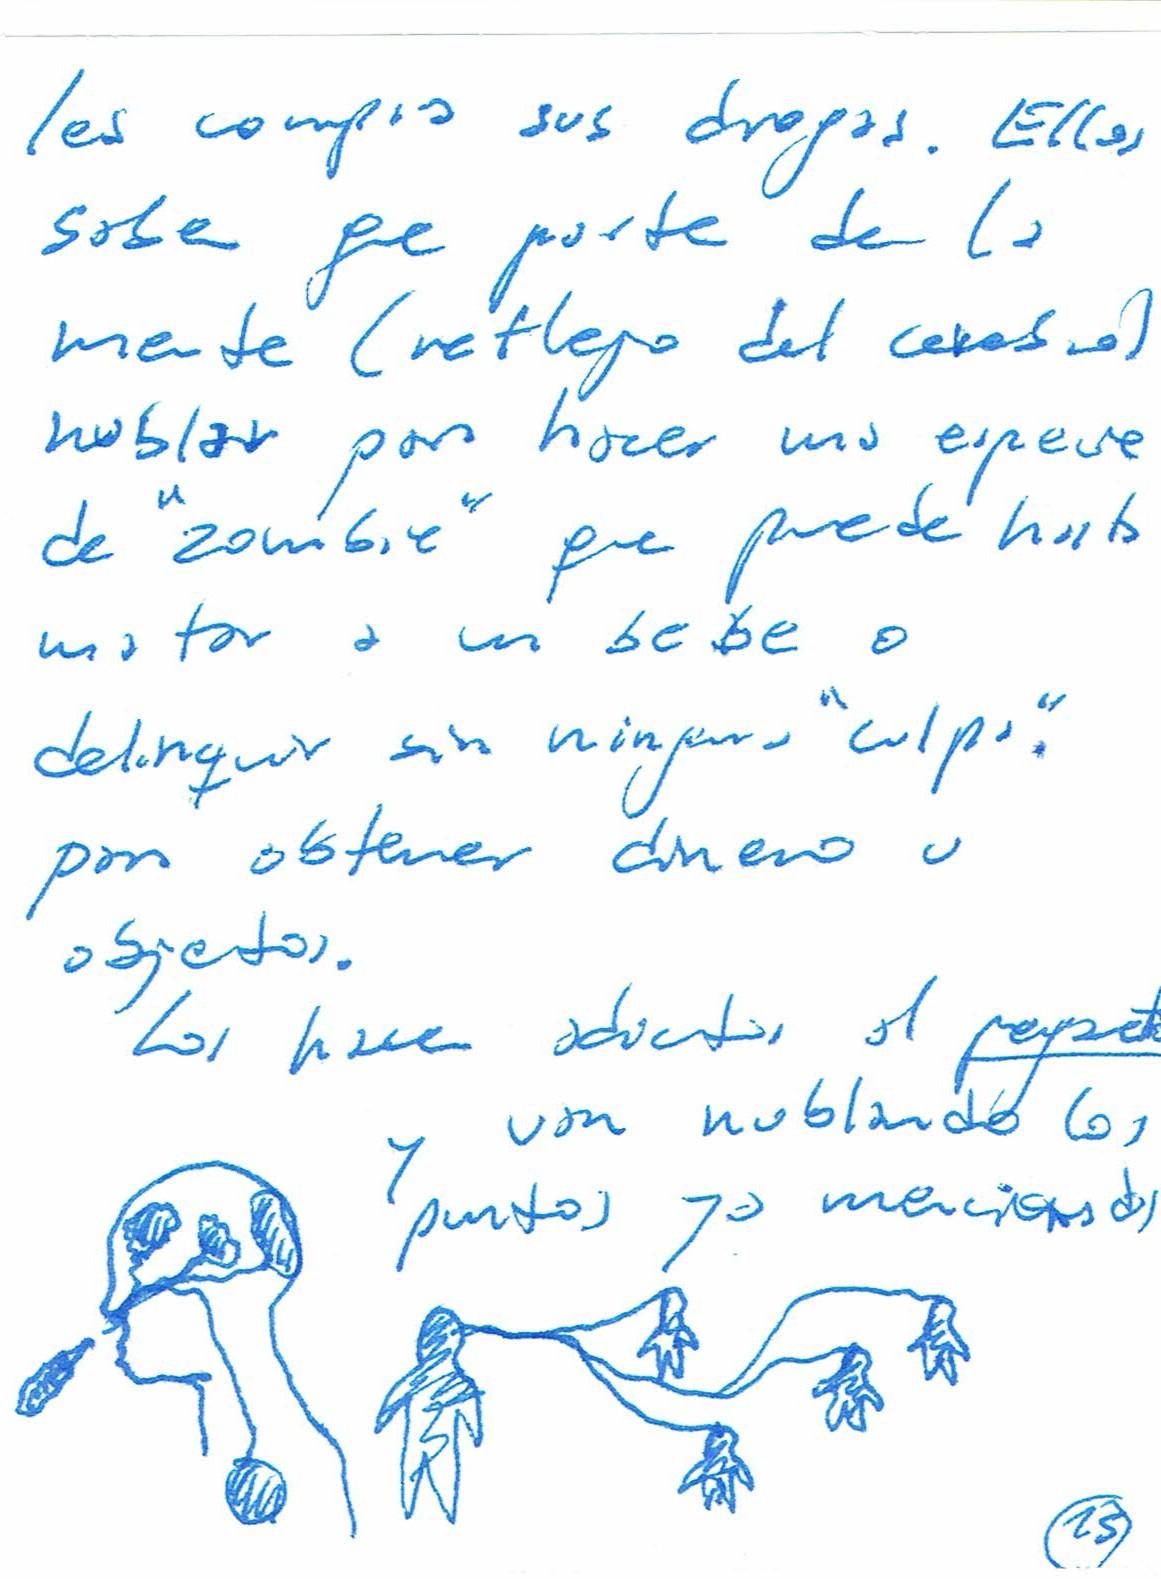 les compra sus drogas. Ellos
saben que parte de la
mente (reflejo del cerebro)
nublar para hacer una especie
de "zombie" que puede hasta
matar a un bebe o
delinquir sin ninguna "culpa".
para obtener dinero u
objetos.
Los hacen adictos al
y van nublando los
puntos ya mencionados
13